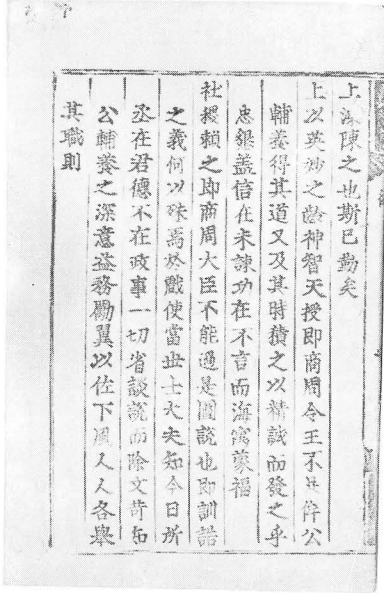 上陳之也斯已勤矣
上以英妙之齡神智天授即商周令王不侔公
輔養得其道又及其時積之以精誠而發之乎
忠懇蓋信在未諫功在不言而海寓蒙福
社稷賴之即商周大臣不能過是圖說也即訓誥
之義何以殊焉於戲使當世士大夫知今日所
丞在君德不在政事一切省談說而除文苛
公輔養之深意益務勵翼以佐下風人人各舉
其職則